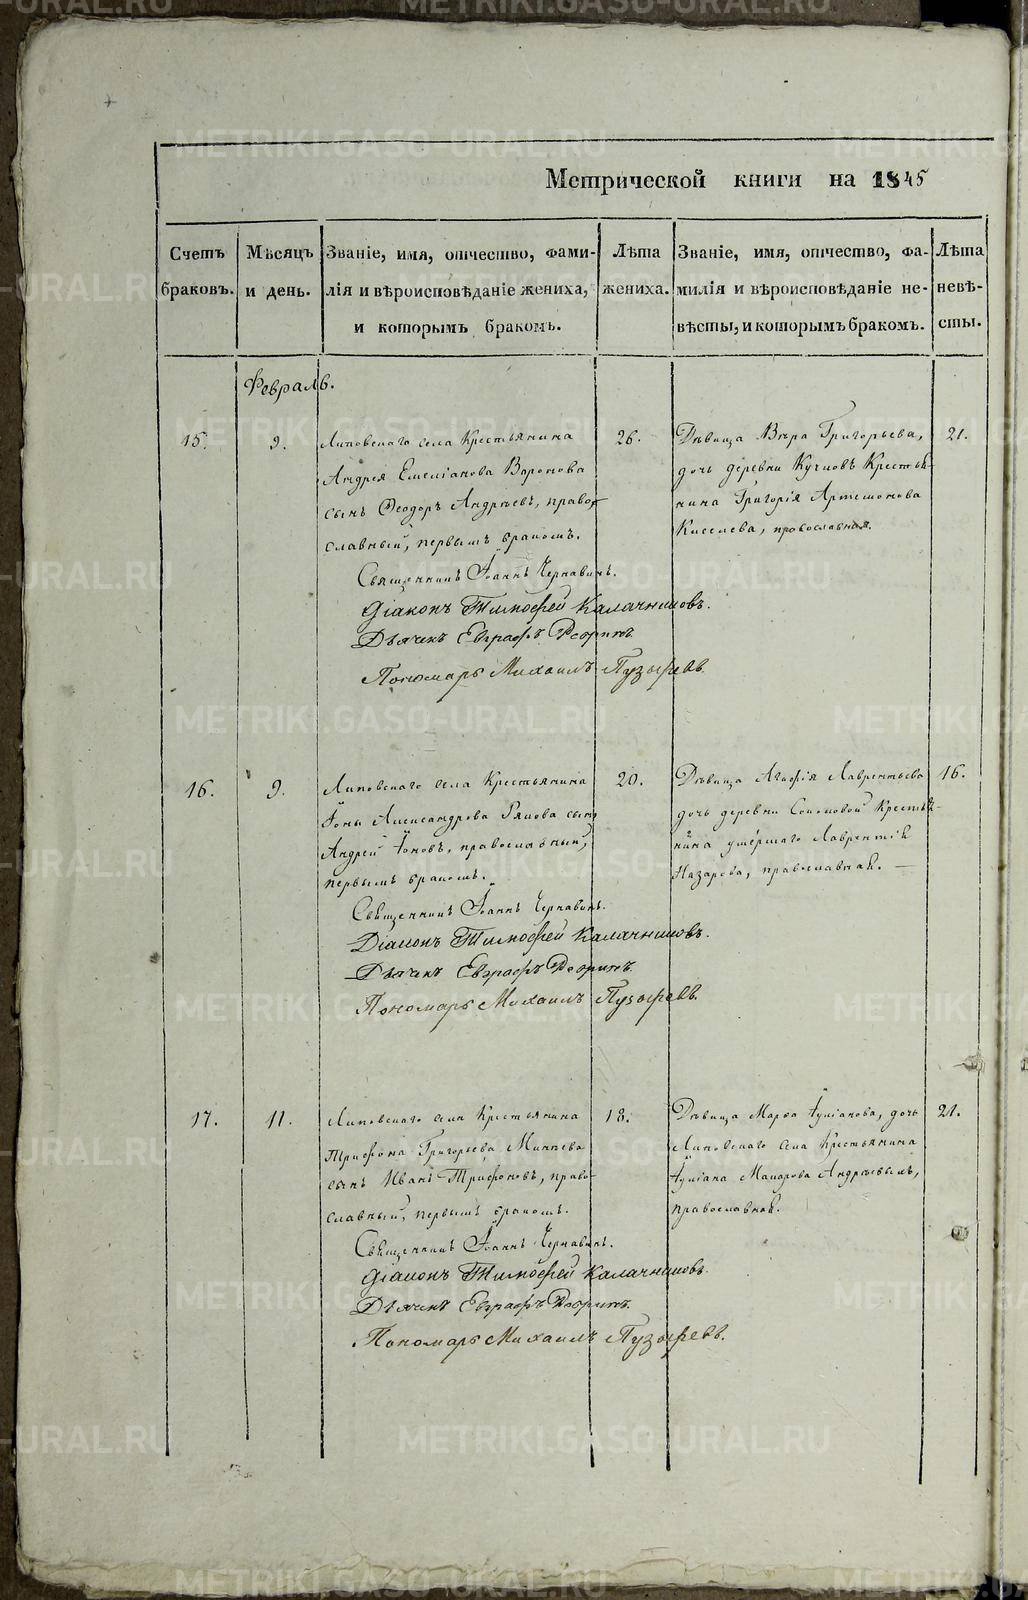 Метрической книги на 1845
Счетъ браковъ.
Мѣсяцъ и день.
Званіе, имя, отчество, фами-
лія и вѣроисповѣданіе жениха,
и которымъ бракомъ.
Лѣта жениха.
Званіе, имя, отчество, фа-
милія и вѣроисповѣданіе не-
вѣсты, и которымъ бракомъ.
Лѣта невѣ-
сты.
Февраль.
15.
9.
Липовскаго села Крестьянина
Андрея Емеліанова Воронова
сынъ Ѳеодоръ Андреевъ, право-
славный, первымъ бракомъ.
26.
Дѣвица Вѣра Григорьева,
дочь деревни Кучковъ Крестья-
нина Григорія Артемонова
Киселева, православная.
21.
Священникъ Іоаннъ Чернавинъ.
Діаконъ Тимофей Калачниковъ.
Дьячекъ Евграфъ
Пономарь Михаилъ Пузыревъ.
16.
9.
Липовскаго села Крестьянина
Іоны Александрова сынъ
Андрей Іоновъ, православный,
первымъ бракомъ.
20.
Дѣвица Агафія Лаврентьева
дочь деревни Соколовой Крестья-
нина умершаго Лаврентія
Назарова, православная.
16.
Священникъ Іоаннъ Чернавинъ.
Діаконъ Тимофей Калачниковъ.
Дьячекъ Евграфъ
Пономарь Михаилъ Пузыревъ.
17.
11.
Липовскаго села Крестьянина
Трифона Григорьева Минѣева
сынъ Иванъ Трифоновъ, право-
славный, первымъ бракомъ.
18.
Дѣвица Марѳа Іуліанова, дочь
Липовскаго села Крестьянина
Іуліана Макарова Андреевыхъ,
православная.
21.
Священникъ Іоаннъ Чернавинъ.
Діаконъ Тимофей Калачниковъ.
Дьячекъ Евграфъ
Пономарь Михаилъ Пузыревъ.
METRIKI.GASO-URAL.RU